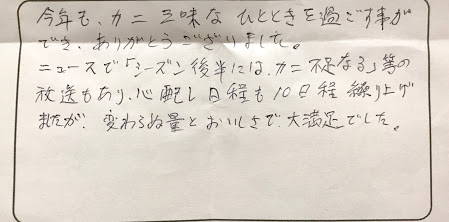 今年も、カニ三昧なひとときを過ごす事が
でき、ありがとうございました。
ニュースで「シーズン後半には、カニ不足なる」等の
放送もあり、心配し日程も10日程繰り上げ
ましたが、変わらぬ量とおいしさで、大満足でした。